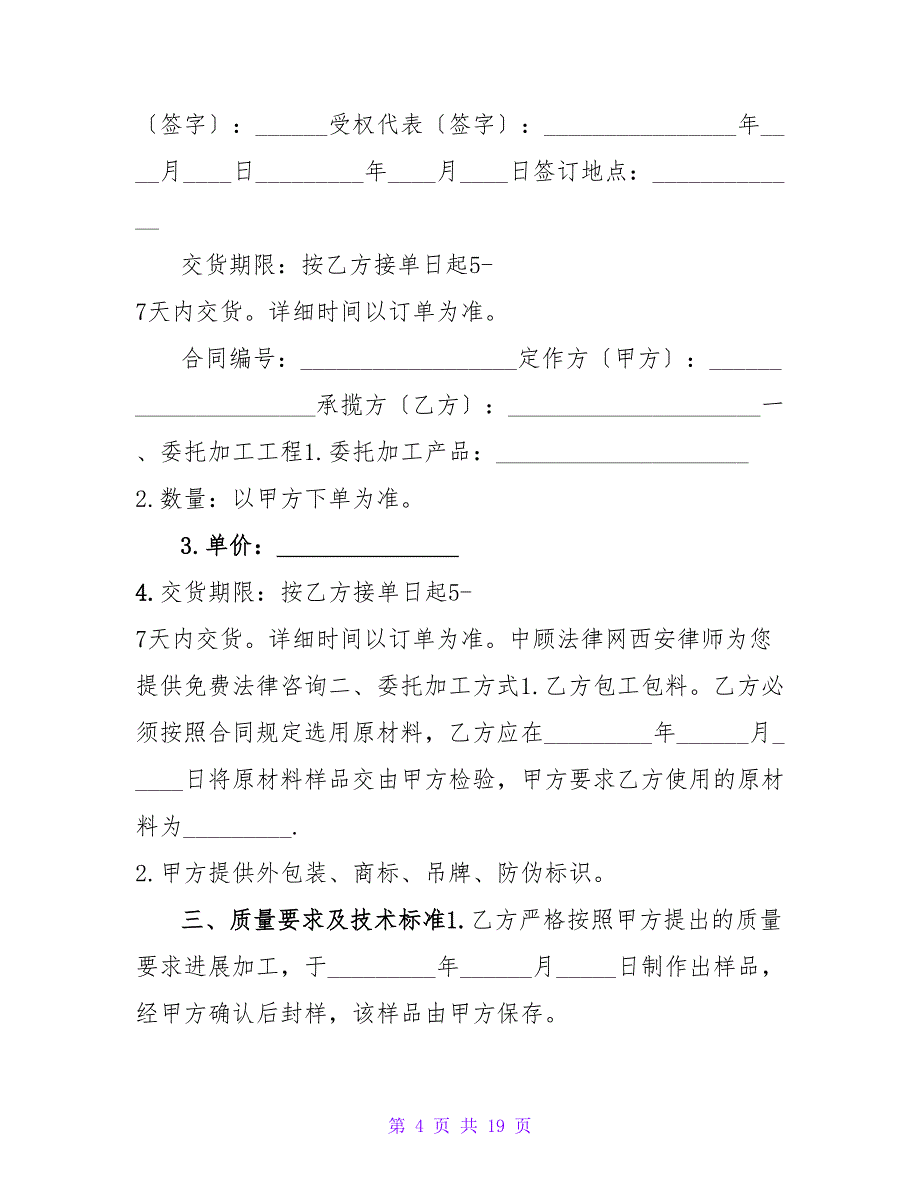 〔签字〕：______受权代表〔签字〕：________________年__
__月____日_________年____月____日签订地点：___________
__
交货期限：按乙方接单日起5-
7天内交货。详细时间以订单为准。
合同编号：__________________定作方〔甲方〕：______
_______________承揽方〔乙方〕：_____________________一
、委托加工工程1.委托加工产品：_____________________
2.数量：以甲方下单为准。
3.单价：_______________
4.交货期限：按乙方接单日起5-
7天内交货。详细时间以订单为准。中顾法律网西安律师为您
提供免费法律咨询二、委托加工方式1.乙方包工包料。乙方必
须按照合同规定选用原材料，乙方应在_________年______月_
____日将原材料样品交由甲方检验，甲方要求乙方使用的原材
料为_________.
2.甲方提供外包装、商标、吊牌、防伪标识。
三、质量要求及技术标准1.乙方严格按照甲方提出的质量
要求进展加工，于_________年______月_____日制作出样品，
经甲方确认后封样，该样品由甲方保存。
第 4 页 共 19 页